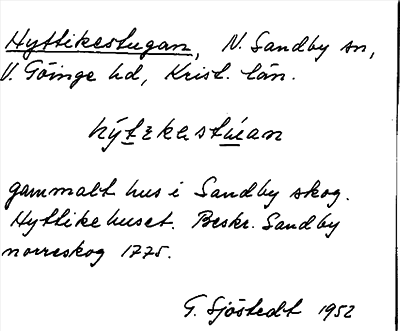 Hyttikestugan, N. Sandby sn,
V. Göinge hd, Krist. län.
hýtɪkestúan
gammalt hus i Sandby skog.
Hyttikehuset. Beskr. Sandby
norreskog 1775.
G. Sjöstedt 1952